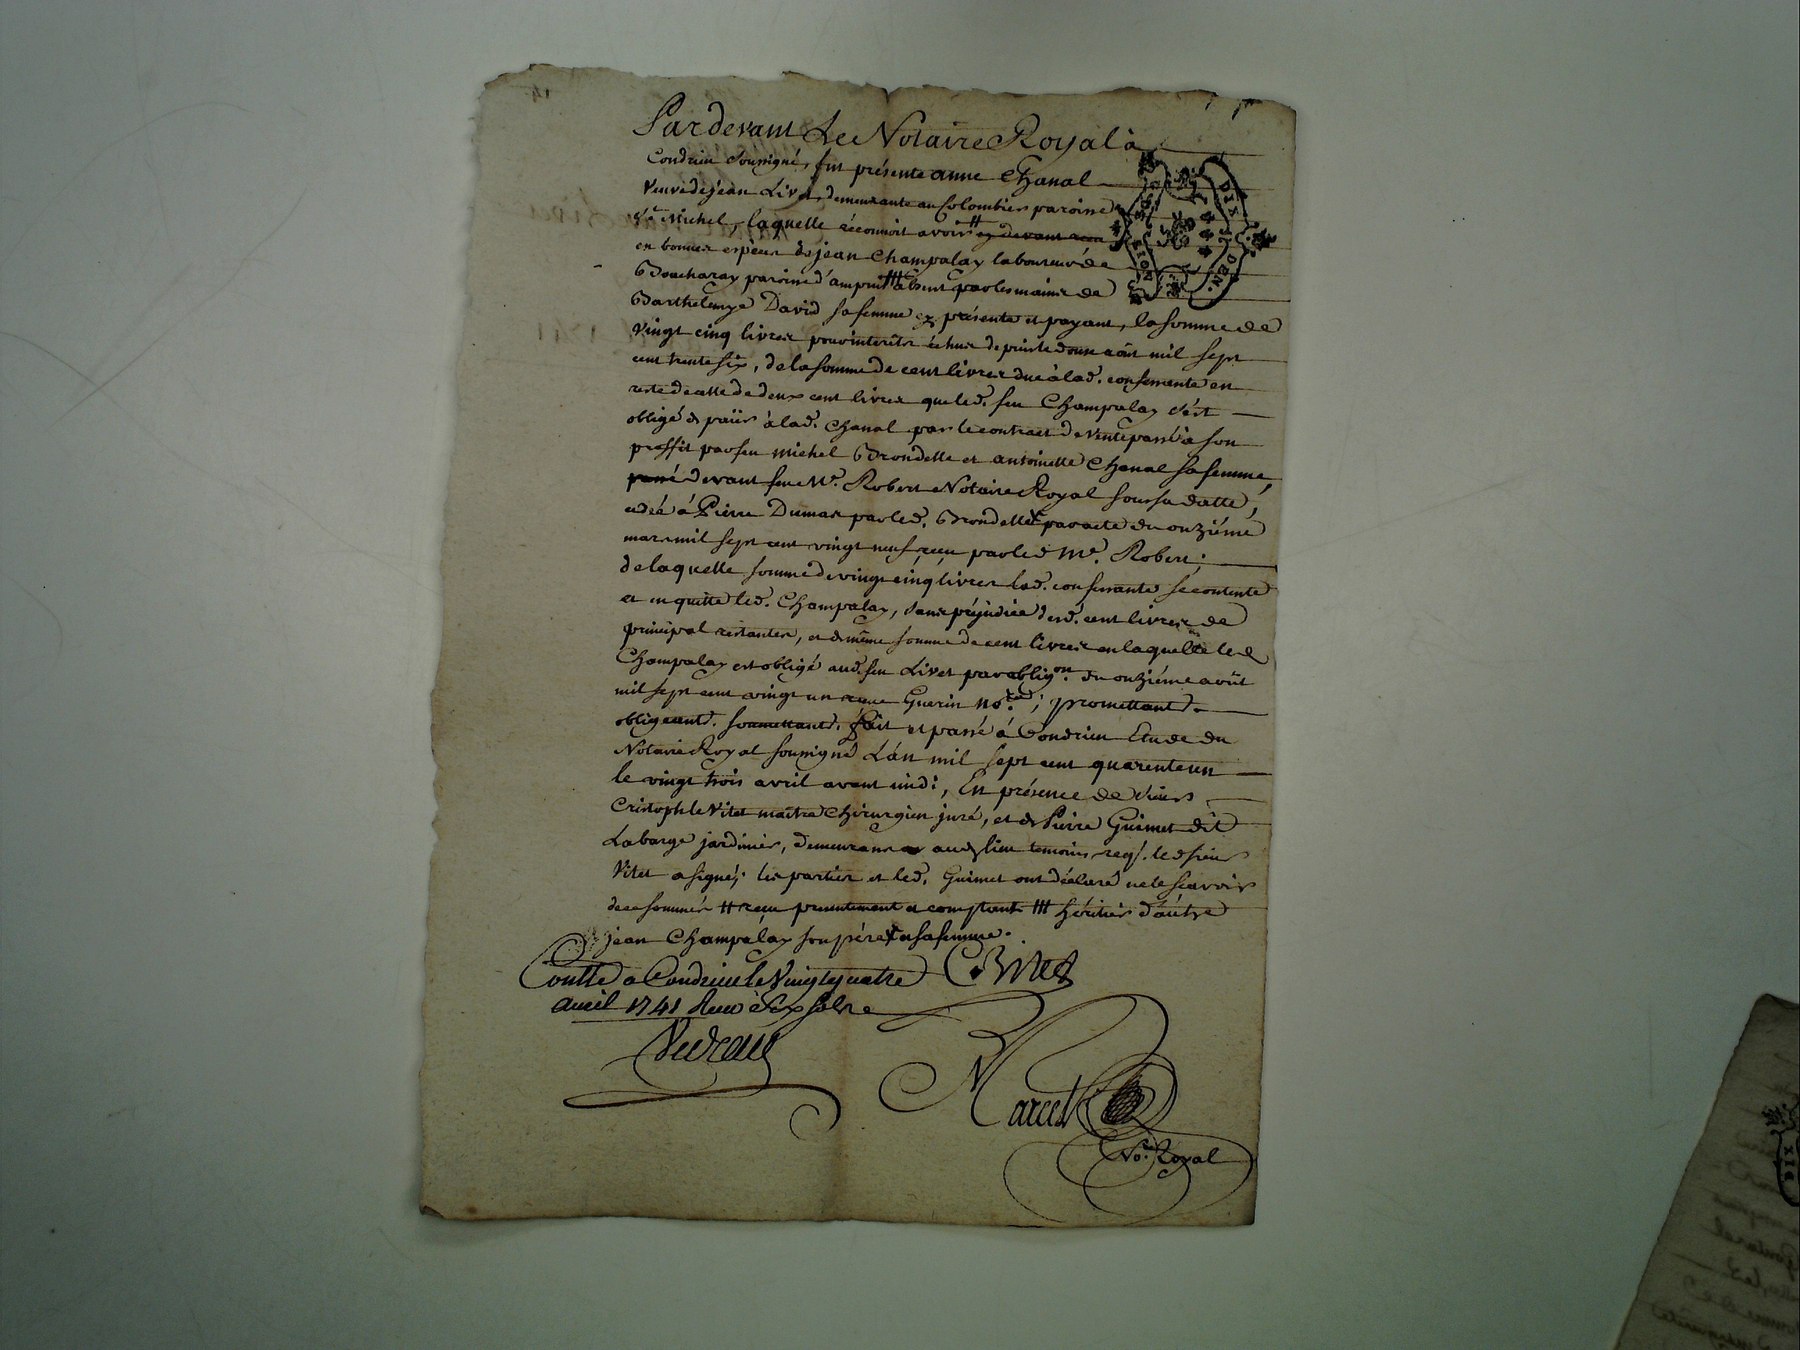 Pardevant Le Notaire Royal à
Condrieu soussigné, fut présente anne Chanal
Veuve de jean Livet, demeurante au Colombier paroisse
St. Michel, laquelle réconnoit avoir # cy devant
en bonnes espèces de jean Champalay laboureur de
Boucharay paroisse d'ampuis ### absent par les mains de
Barthelemye David sa femme cy présente et payant, la somme de
vingt cinq livres pour interêts échus de puis le douze août mil sept
cent trente six, de la somme de cent livres due à lad. confessente en
reste de celle de deux cent livres que led. feu Champalay s'est
obligé de païer à lad. Chanal par le contract de vente passé à son
proffit par feu Michel Brondelle et antoinette Chanal sa femme,
passé devant feu Me. Robert Notaire Royal sous sa datte,
cedée à Pierre Dumas par led. Brondelle par acte du onziéme
mars mil sept cent vingt neuf reçu par led Me. Robert;
de laquelle somme de vingt cinq livres lad. confessante se contente
et en quitte led. Champalay, sans préjudice desd. cent livres de
principal restantes, et de même somme de cent livres en laquelle led
Champalay est obligé aud. feu Livet par oblig.on du onziéme août
mil sept cent vingt un Guerin no.re; promettant.
obligeant. soumettant. fait et passé à Condrieu Etude du
Notaire Royal soussigné L'an mil sept cent quarente un
le vingt trois avril avant midi, En présence de sieurs
Cristophle Vitet maître Chirurgien juré, et de Pierre Guimet dit
Labarge jardinier, demeurans aud. lieu temoins req. led sieur
Vitet a signé, les parties et led. Guimet ont déclaré ne le sçavoir
de ce sommés # reçu presentement et comptant ### héritier d'autre
jean Champalay son père et sa femme.
Contlé a Condrieu le Vingt quatre
avril 1741 Reçu
Marcel
No.re Royal